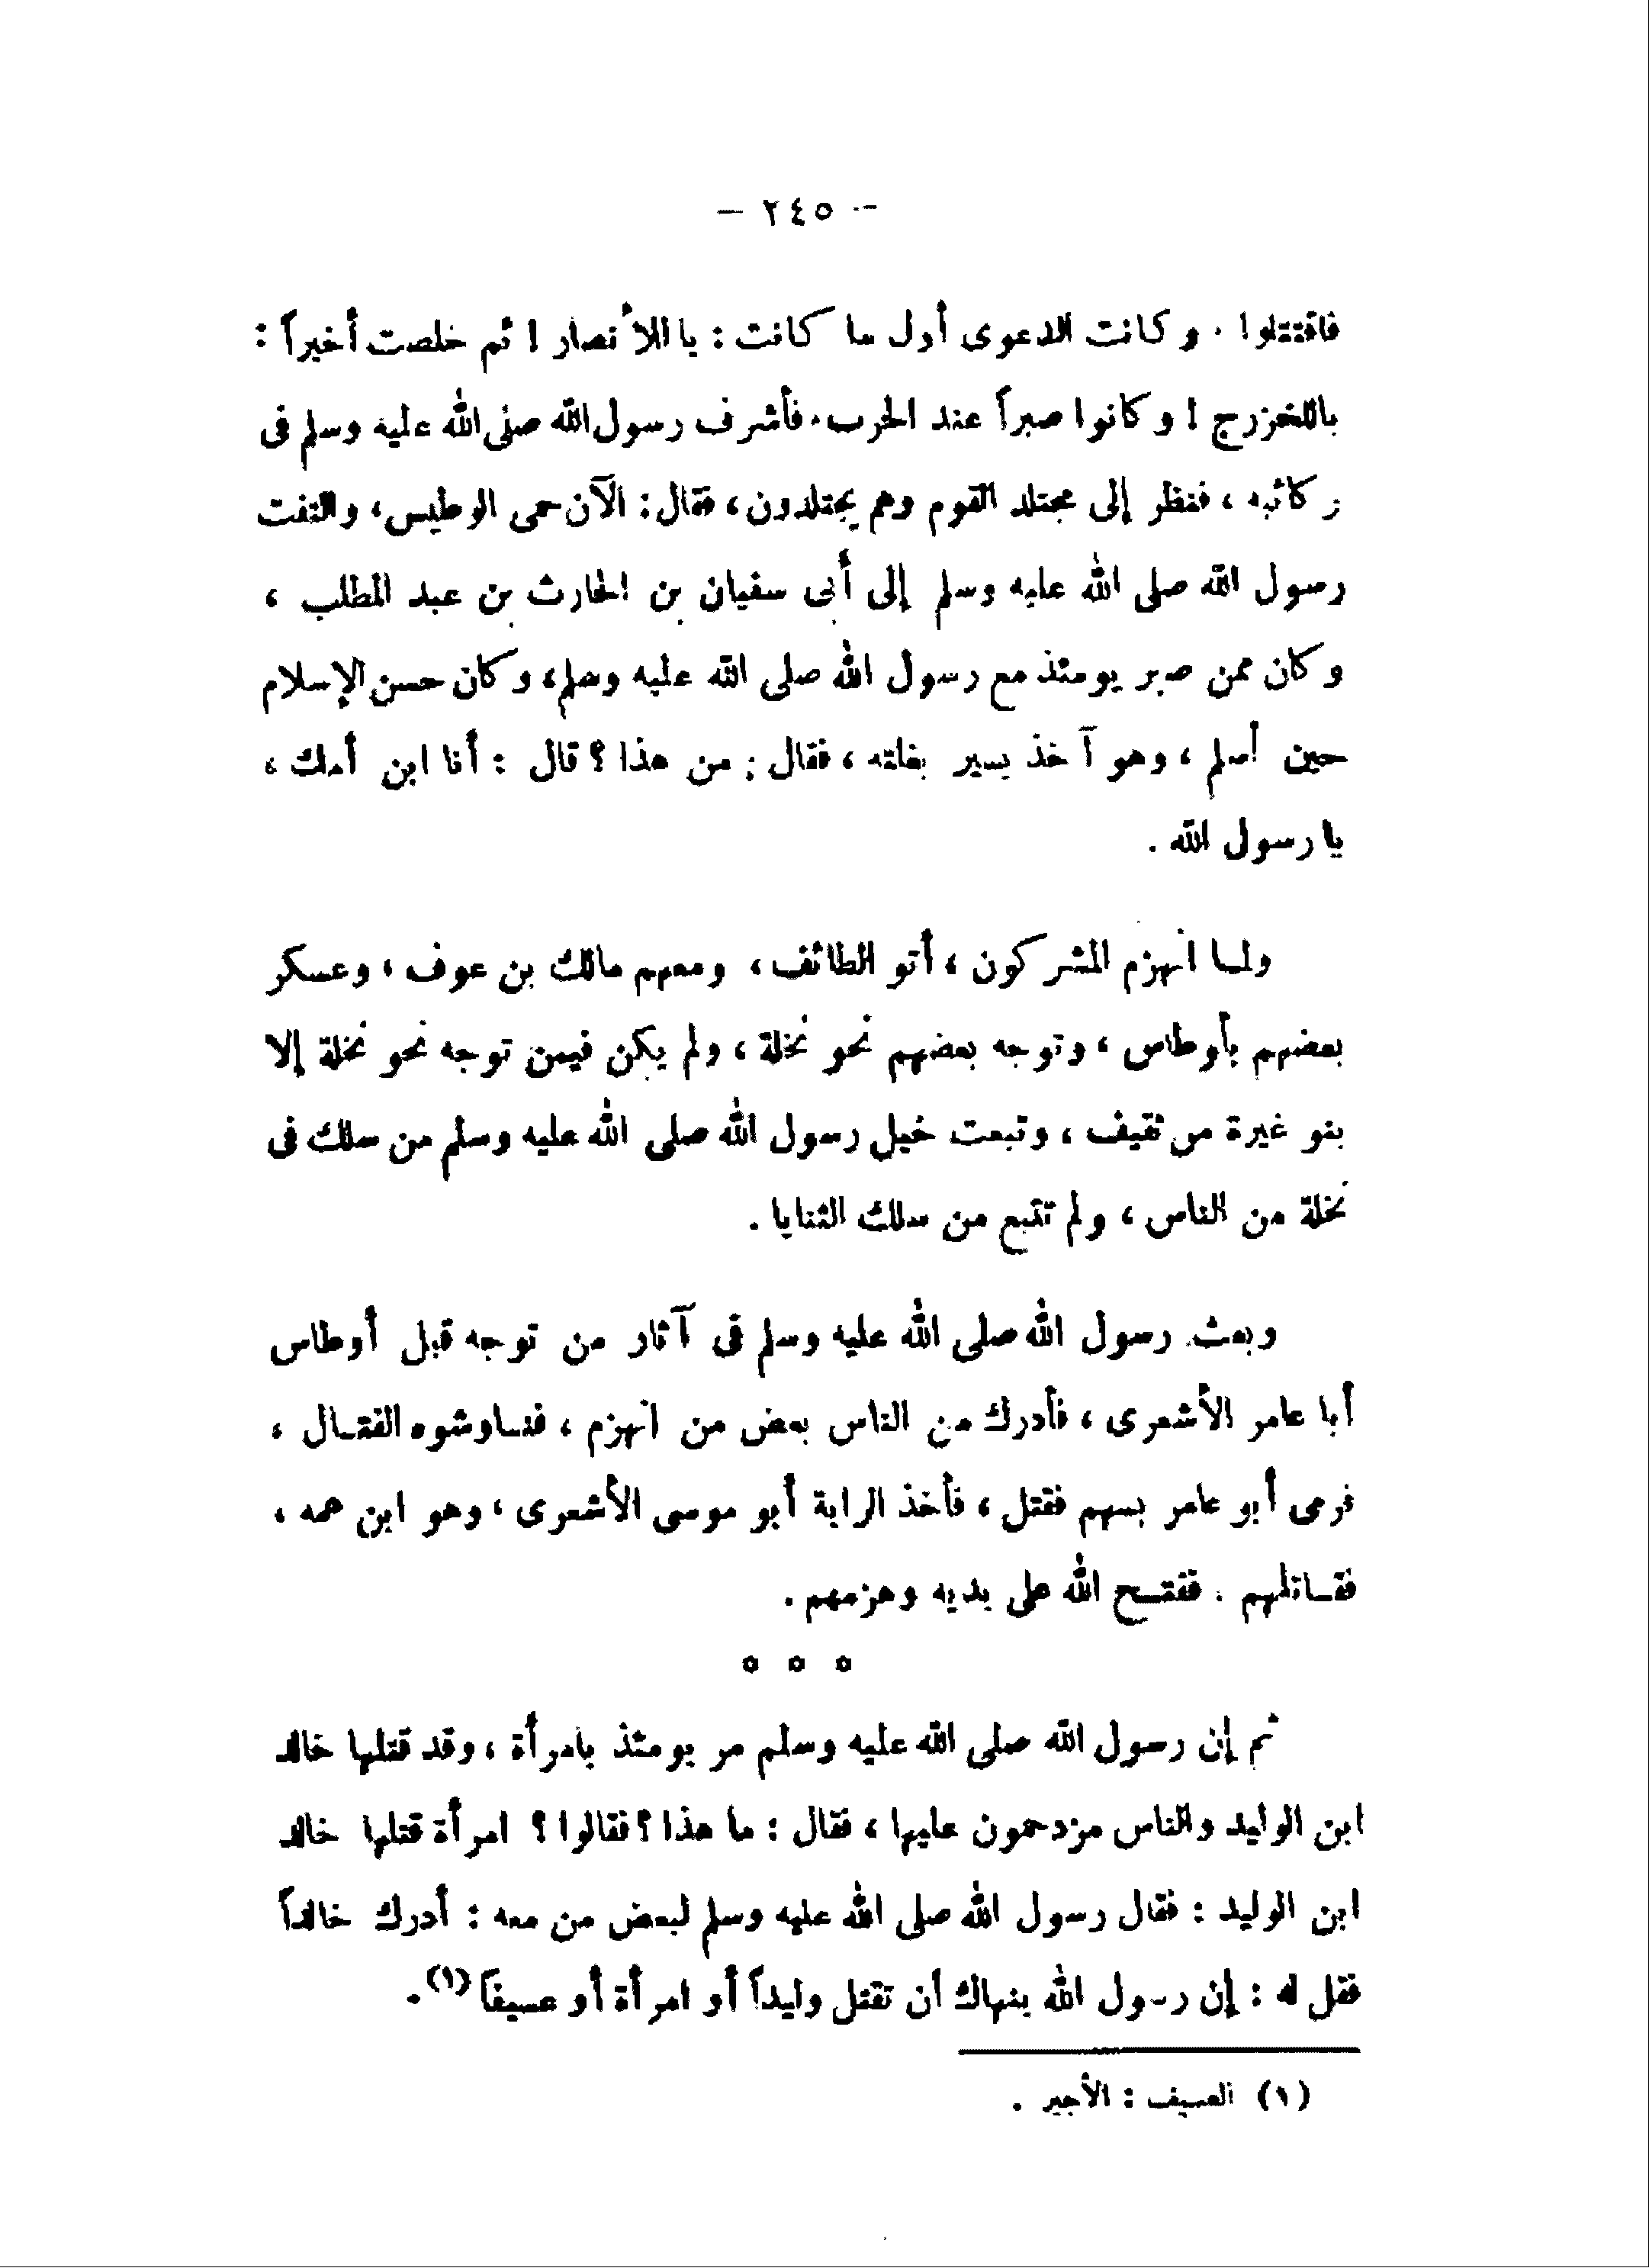 — ٢٤٥ —
فاقتتلوا . وكانت الدعوى أول ما كانت : ياللأنصار ! ثم خلصت أخيراً :
ياللخزرج ! وكانوا صبراً عند الحرب . فأشرف رسول الله صلى الله عليه وسلم فى
ركائبه ، فنظر إلى مجتلد القوم وهم يجتلدون ، فقال : الآن حمى الوطيس ، والتفت
رسول الله صلى الله عليه وسلم إلى أبى سفيان بن الحارث بن عبد المطلب ،
وكان ممن صبر يومئذ مع رسول الله صلى الله عليه وسلم ، وكان حسن الإسلام
حين أسلم ، وهو آخذ بسير بغلته ، فقال : من هذا ؟ قال : أنا ابن أمك ،
يا رسول الله .
ولما انهزم المشركون ، أتو الطائف ، ومعهم مالك بن عوف ، وعسكر
بعضهم بأوطاس ، وتوجه بعضهم نحو نخلة ، ولم يكن فيمن توجه نحو نخلة إلا
بنو غيرة من ثقيف ، وتبعت خيل رسول الله صلى الله عليه وسلم من سلك فى
نخلة من الناس ، ولم تتبع من سلك الثنايا .
وبعث رسول الله صلى الله عليه وسلم فى آثار من توجه قبل أوطاس
أبا عامر الأشعرى ، فأدرك من الناس بعض من انهزم ، فناوشوه القتال ،
فرمى أبو عامر بسهم فقتل ، فأخذ الراية أبو موسى الأشعرى ، وهو ابن عمه ،
فقاتلهم . ففتح الله على يديه وهزمهم .
ه ه ه
ثم إن رسول الله صلى الله عليه وسلم مر يومئذ بامرأة ، وقد قتلها خالد
ابن الوليد والناس مزدحمون عليها ، فقال : ما هذا ؟ فقالوا ؟ امرأة قتلها خالد
ابن الوليد : فقال رسول الله صلى الله عليه وسلم لبعض من معه : أدرك خالداً
فقل له : إن رسول الله ينهاك أن تقتل وليداً أو امرأة أو عسيفاً (١) .
(١) العسيف : الأجير .